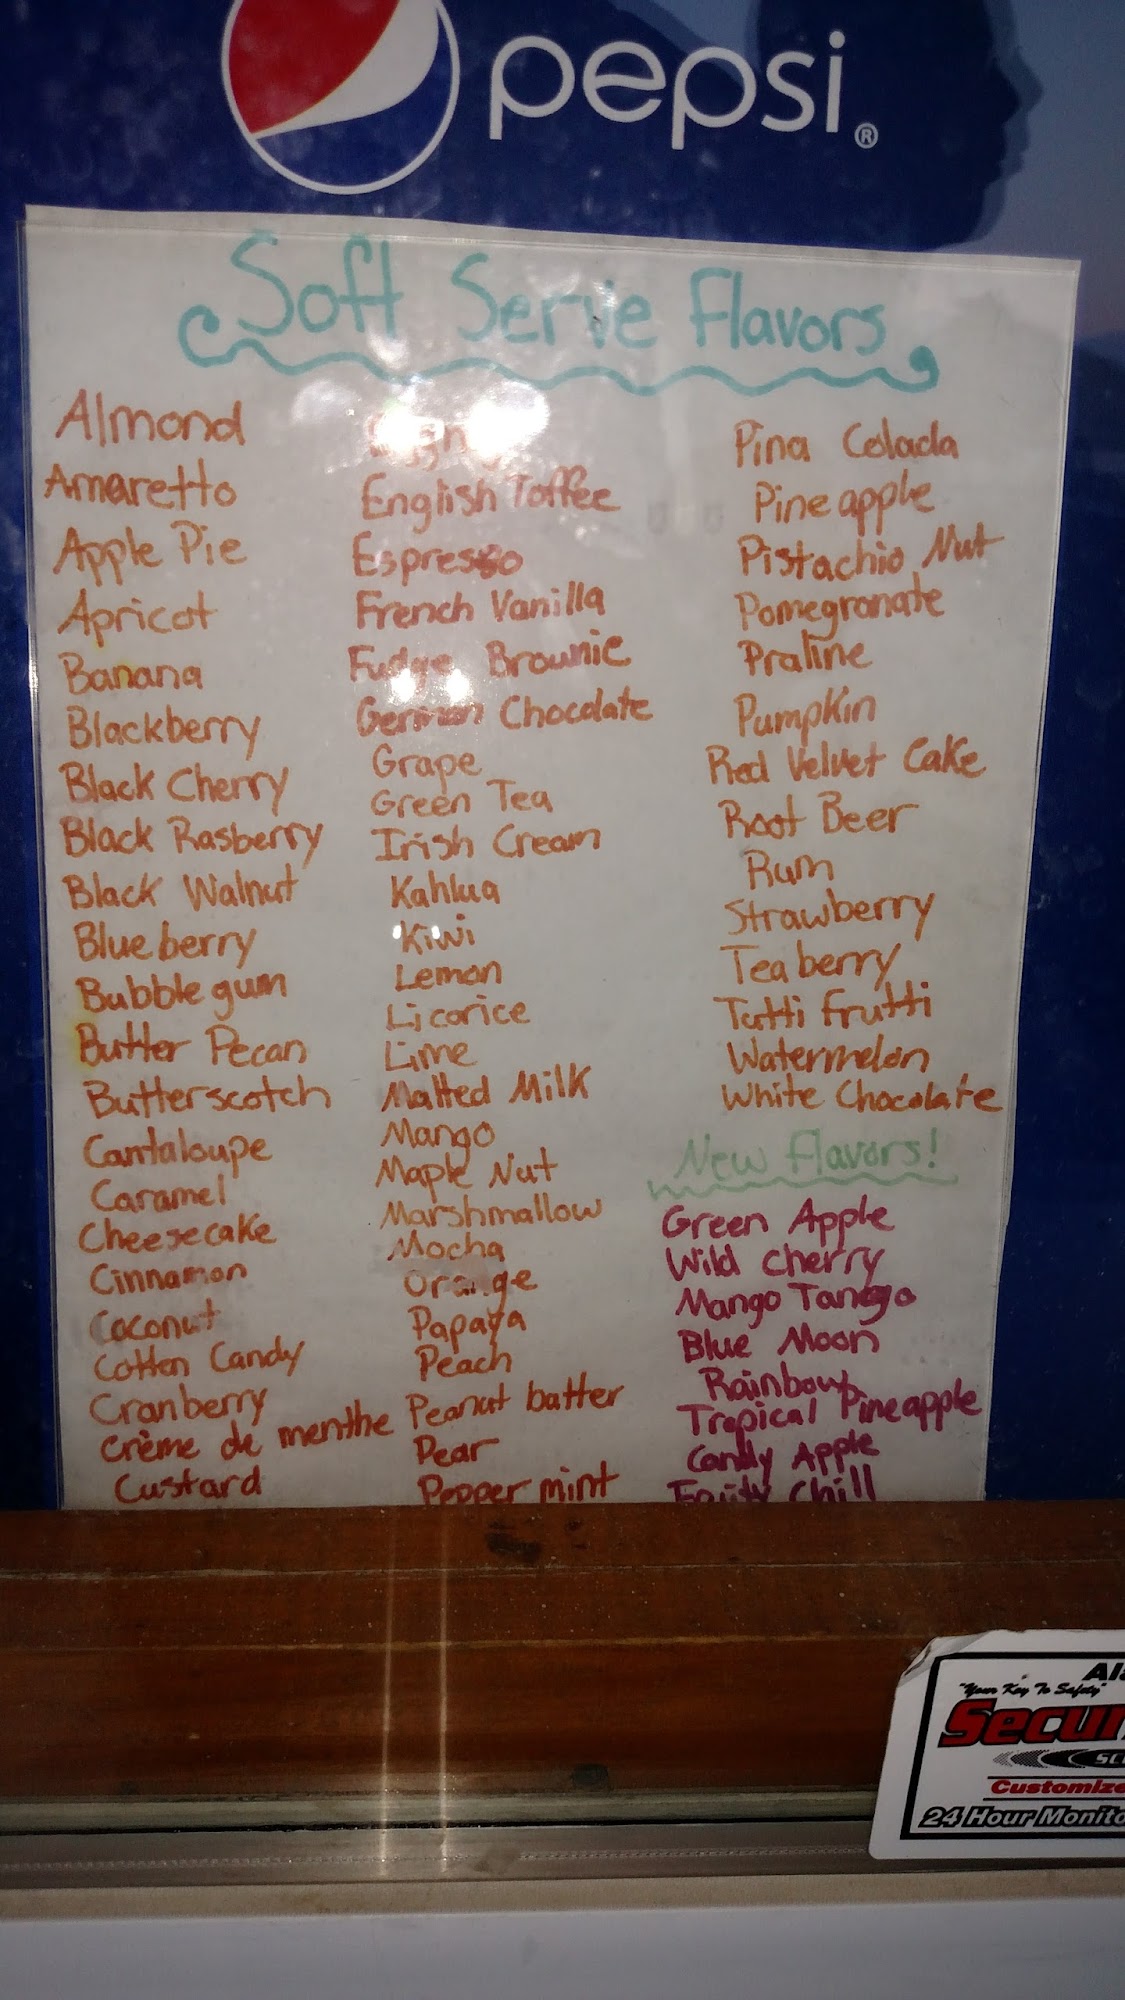 pepsi®
Soft Serve Flavors
Almond
Amaretto
Apple Pie
Apricot
Banana
Blackberry
Black Cherry
Black Rasberry
Black Walnut
Blueberry
Bubble gum
Butter Pecan
Butterscotch
Cantaloupe
Caramel
Cheesecake
Cinnamon
Coconut
Cotten Candy
Cranberry
Crème de menthe
Custard
English Toffee
Espresso
French Vanilla
Fudge Brownie
German Chocolate
Grape
Green Tea
Irish Cream
Kahlua
Kiwi
Lemon
Licorice
Lime
Malted Milk
Mango
Maple Nut
Marshmallow
Mocha
Orange
Papaya
Peach
Peanut butter
Pear
Peppermint
Pina Colada
Pineapple
Pistachio Nut
Pomegranate
Praline
Pumpkin
Red Velvet Cake
Root Beer
Rum
Strawberry
Teaberry
Tutti Frutti
Watermelon
White Chocolate
New Flavors!
Green Apple
Wild Cherry
Mango Tango
Blue Moon
Rainbow
Tropical Pineapple
Candy Apple
Fruity Chill
"Your Key To Safety"
24 Hour